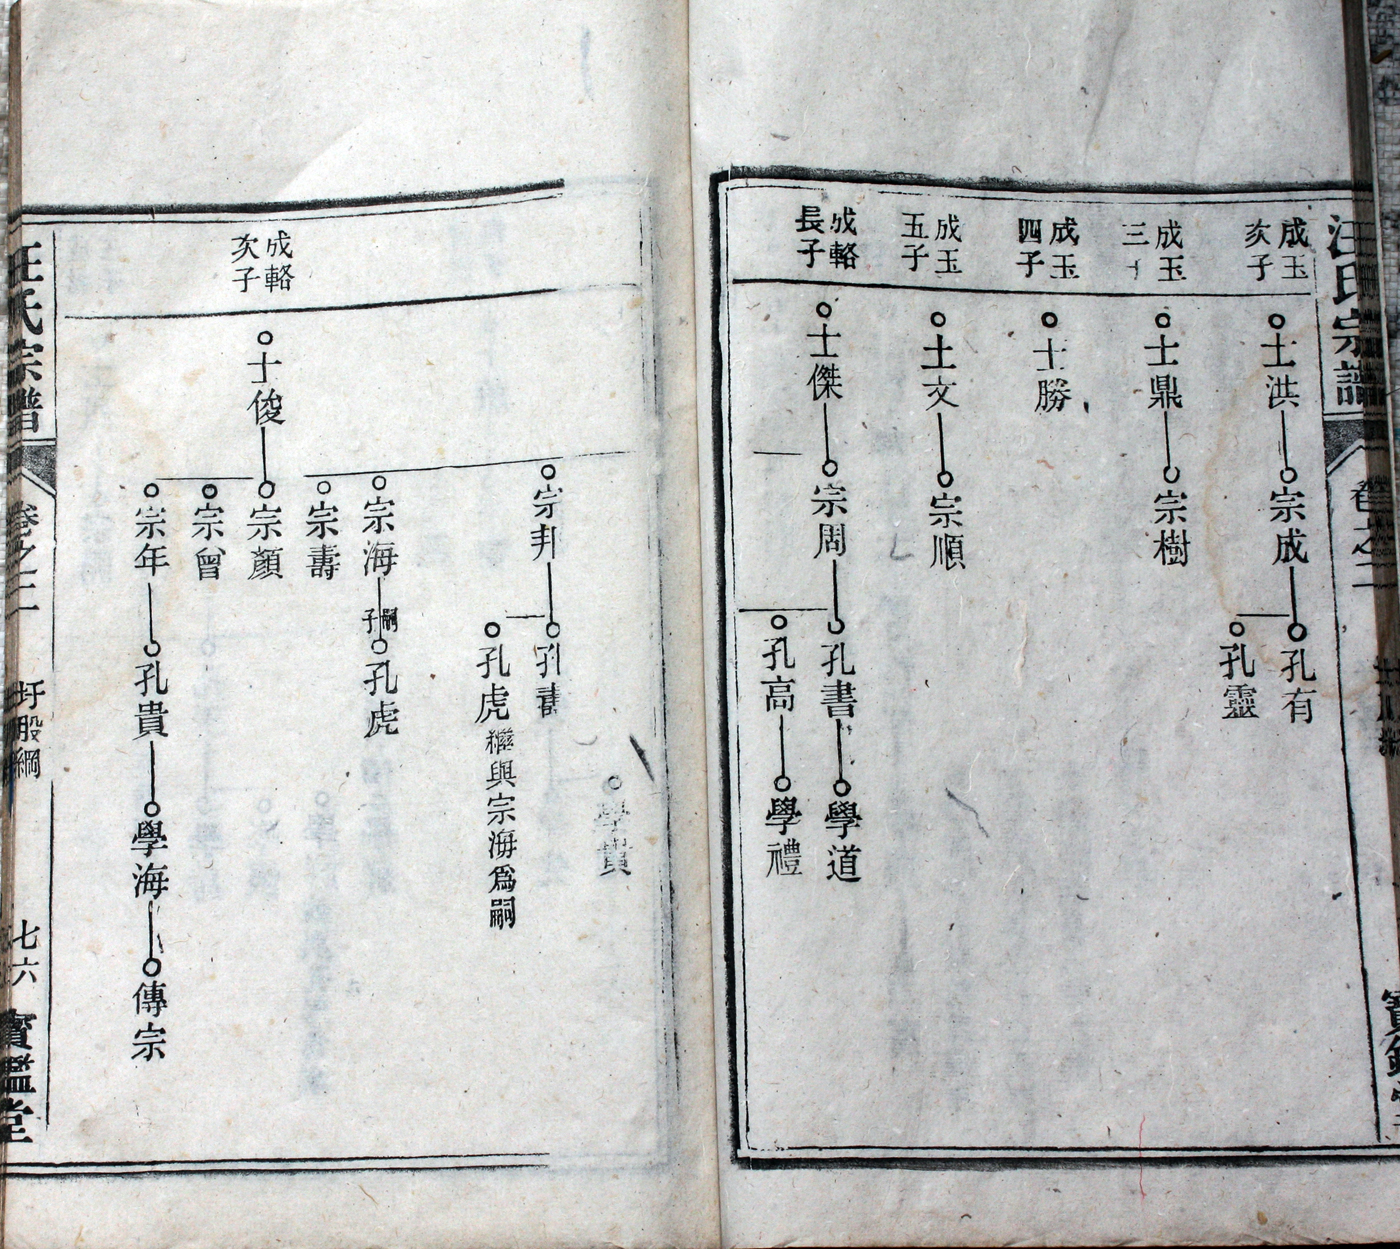 汪氏宗譜
卷之二
成玉
次子
士洪
宗成
孔有
孔靈
成玉
三子
士鼎
宗樹
成玉
四子
士勝
成玉
五子
士文
宗順
成輅
長子
士傑
宗周
孔書
學道
孔高
學禮
學貴
宗邦
孔壽
孔虎
繼與宗海爲嗣
宗海
嗣子
孔虎
宗壽
成輅
次子
士俊
宗顏
宗曾
宗年
孔貴
學海
傳宗
汪氏宗譜
卷之二
圩股綱
七六
寶鑑堂